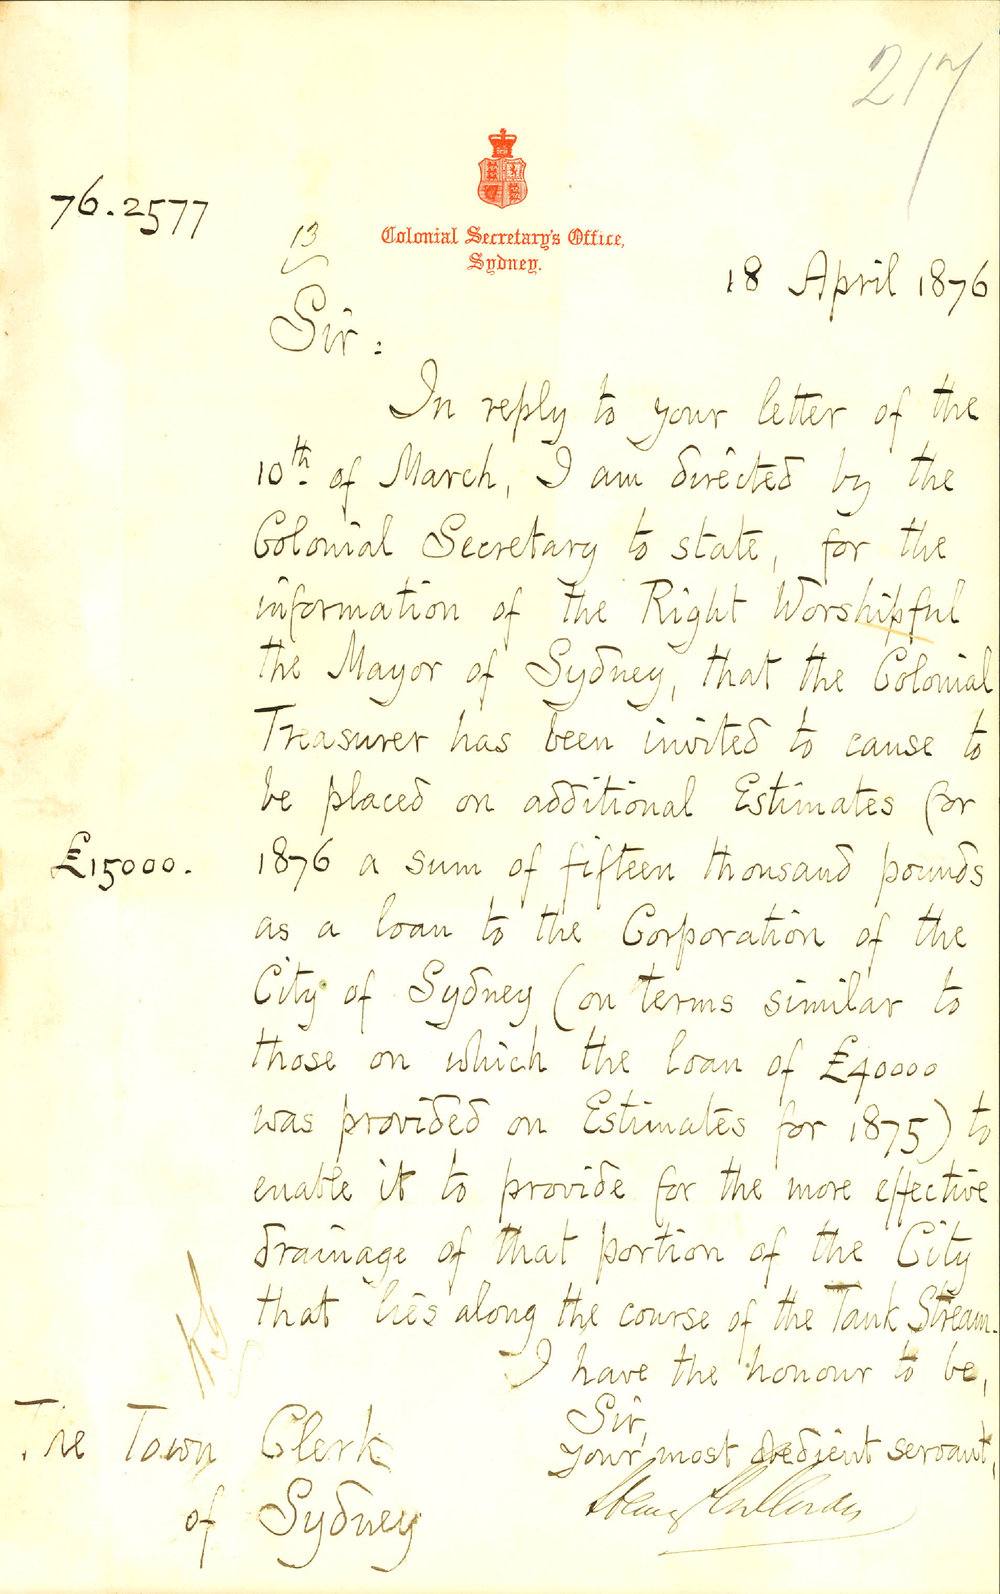 217
76.2577
13
Colonial Secretary's Office,
Sydney.
18 April 1876
Sir:
In reply to your letter of the
10th. of March, I am directed by the
Colonial Secretary to state, for the
information of the Right Worshipful
the Mayor of Sydney, that the Colonial
Treasurer has been invited to cause to
be placed on additional Estimates for
£15000. 1876 a sum of fifteen thousand pounds
as a loan to the Corporation of the
City of Sydney (on terms similar to
those on which the loan of £40000
was provided on Estimates for 1875) to
enable it to provide for the more effective
drainage of that portion of the City
that lies along the course of the Tank Stream.
I have the honour to be,
Sir,
Your most obedient servant,
The Town Clerk
of Sydney